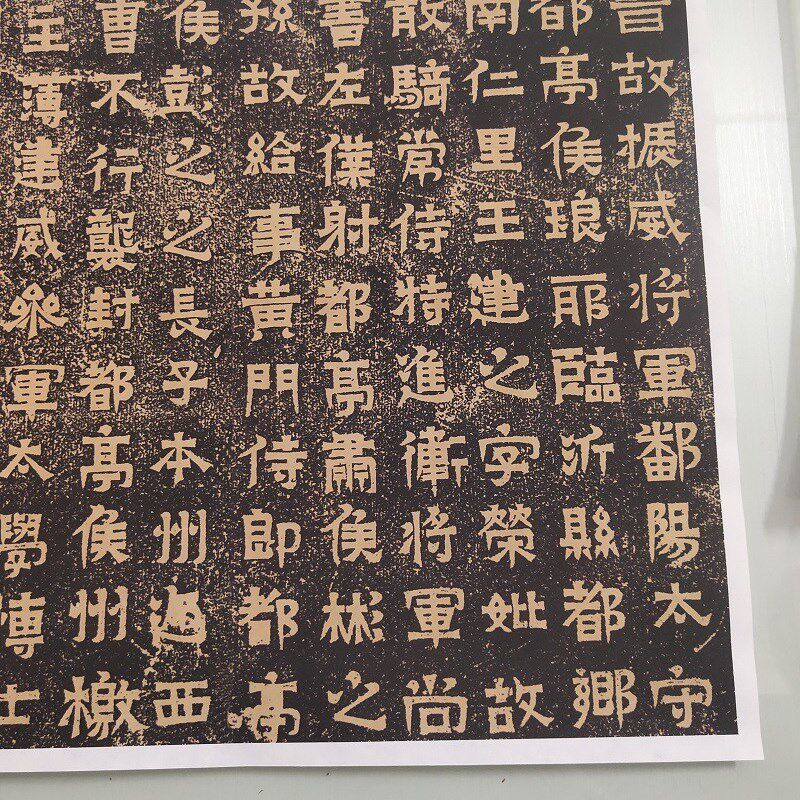 晉故振威将軍鄱陽太守
都亭侯琅耶臨沂縣都鄉
南仁里王建之字榮妣故
散騎常侍特進衛将軍尚
書左僕射都亭肅侯彬之
孫故給事黃門侍郎都亭
侯彭之之長子本州迎西
曹不行襲封都亭侯州檄
主薄建威參軍太學博士